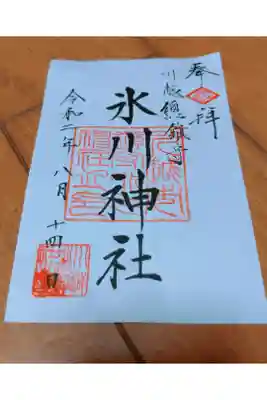 奉拝
川越總鎮守
氷川神社
令和二年八月十四日